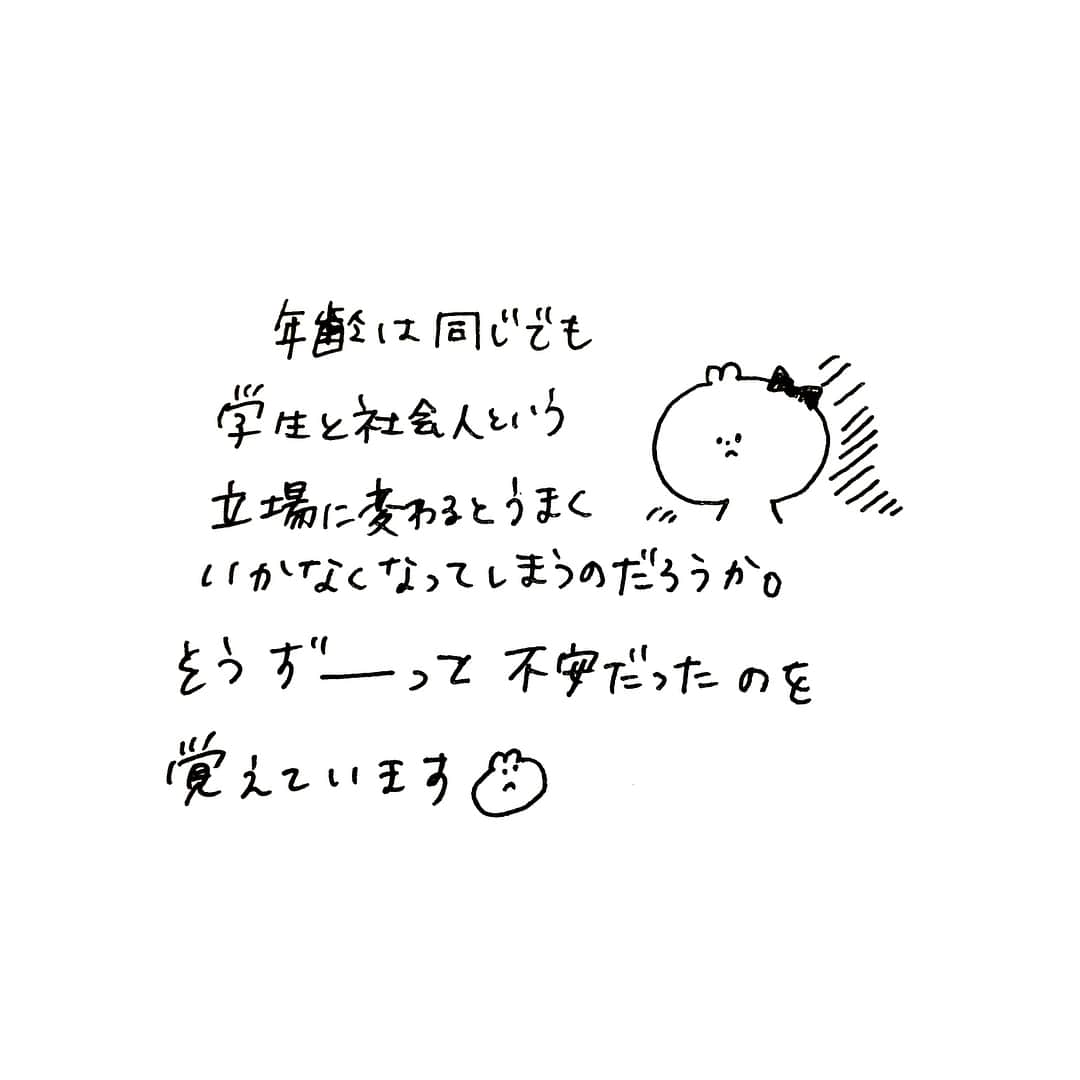 年齢は同じでも
学生と社会人という
立場に変わるとうまく
いかなくなってしまうのだろうか。
そうずーって不安だったのを
覚えています